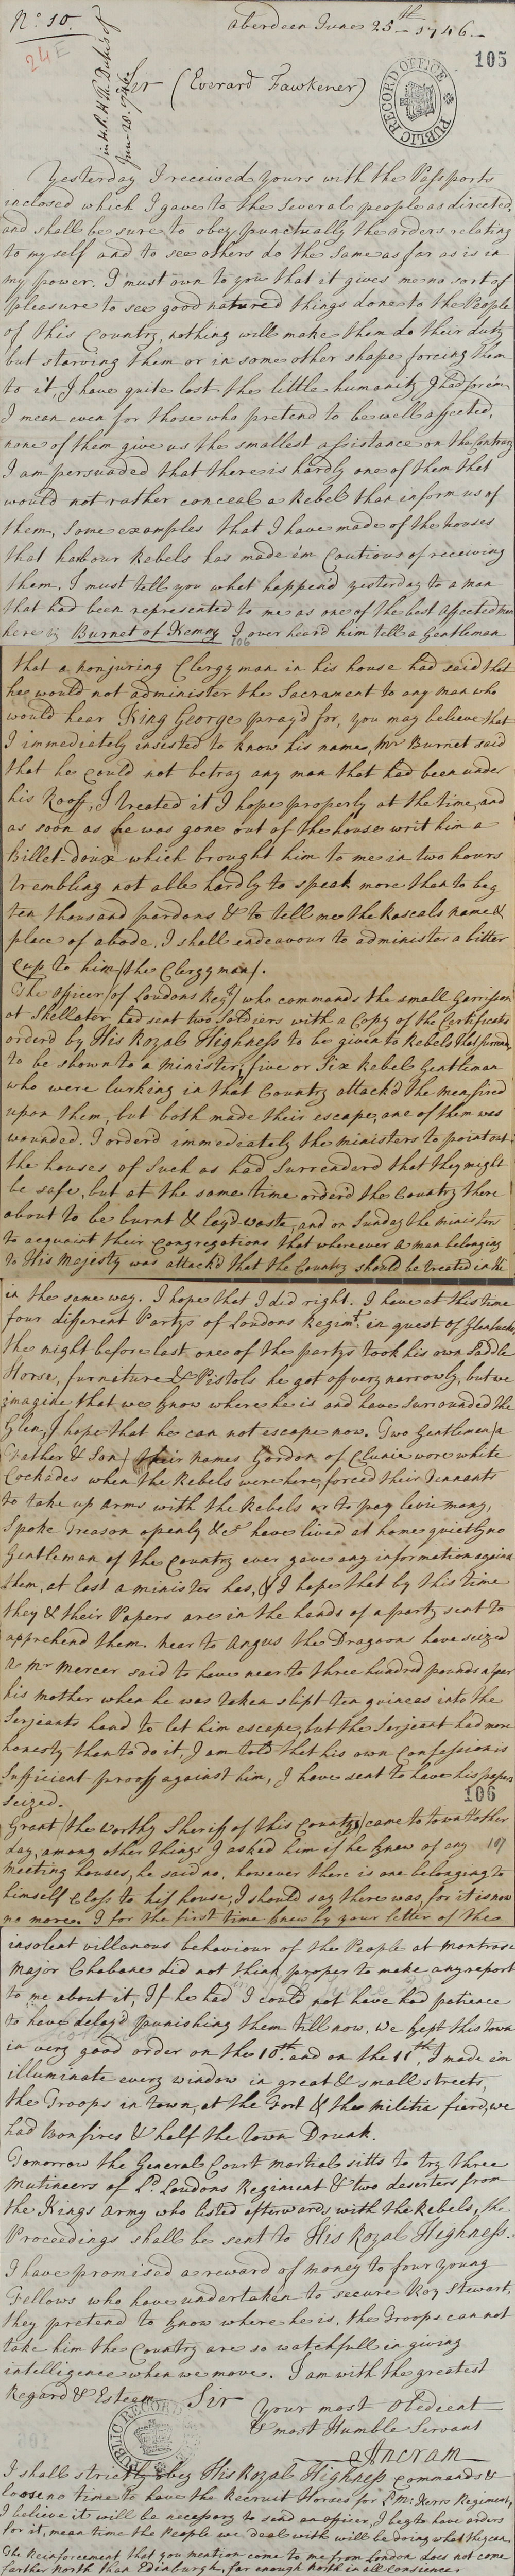 No. 10.
Aberdeen June 25th 1746.
24E
105
in H.R.H. the Dukes of
June 28. 1746.
Sir (Everard Fawkener)
PUBLIC RECORD OFFICE
Yesterday I received yours with the Passports
inclosed which I gave to the several people as directed,
and shall be sure to obey punctually the orders relating
to my self and to see others do the same as far as is in
my power. I must own to you that it gives me no sort of
pleasure to see good natured things done to the People
of this Country, nothing will make them do their duty
but starving them or in some other shape forceing them
to it, I have quite lost the little humanity I had for em
I mean even for those who pretend to be well affected,
none of them give us the smallest assistance on the Contrary
I am persuaded that there is hardly one of them that
would not rather conceal a Rebel than inform us of
them, Some examples that I have made of the houses
that harbour Rebels has made em Cautious of receiving
them. I must tell you what happend yesterday to a man
that had been represented to me as one of the best affected men
here viz Burnet of Kemny I over heard him tell a Gentleman
106
that a nonjuring Clergyman in his house had said that
he would not administer the Sacrament to any man who
would hear King George pray'd for, you may believe that
I immediately insisted to know his name, Mr Burnet said
that he could not betray any man that had been under
his Rooff, I treated it I hope properly at the time, and
as soon as he was gone out of the house writ him a
Billet-doux which brought him to me in two hours
trembling not able hardly to speak more than to beg
ten thousand pardons & to tell me the Rascals name &
place of abode, I shall endeavour to administer a bitter
Cup to him (the Clergyman).
The officer (of Loudons Regt) who commands the small Garrison
at Shellater had sent two Soldiers with a Copy of the Certificate
orderd by His Royal Highness to be given to Rebels that surrender
to be shown to a minister, five or Six Rebel Gentleman
who were lurking in that Country attack'd the men fired
upon them, but both made their escape, one of them was
wounded. I orderd immediately the ministers to point out
the houses of Such as had Surrenderd that they might
be safe, but at the same time order'd the Country there
about to be burnt & layd waste, and on Sunday the ministers
to acquaint their Congregations that wherever a man belonging
to His Majesty was attack'd that the Country should be treated in the
in the same way. I hope that I did right. I have at this time
four different Partys of Loudons Regimt. in quest of Glenbucket,
the night before last one of the partys took his own Saddle
Horse, furniture & Pistols he got off very narrowly, but we
imagine that we know where he is and have Surrounded the
Glen, I hope that he can not escape now. Two Gentlemen (a
Father & Son) their names Gordon of Clunie wore white
Cockades when the Rebels were here, forced their Tennants
to take up arms with the Rebels or to pay levie mony,
Spoke treason openly &c. have lived at home quietly no
Gentleman of the Country ever gave any information against
them, at last a minister has, & I hope that by this time
they & their Papers are in the hands of a party sent to
apprehend them. near to Angus the Dragoons have seized
a Mr Mercer said to have near to three hundred pounds a year
his mother when he was taken slipt ten guineas into the
Serjeants hand to let him escape, but the Serjeant had more
honesty than to do it, I am told that his own Confession is
Sufficient prooff against him, I have sent to have his papers
seized.
106
Grant (the worthy Sherif of this County) came to town tother
day, among other things I asked him if he knew of any
107
meeting houses, he said no, however there is one belonging to
himself Close to his house, I should say there was, for it is now
no more. I for the first time knew by your letter of the
insolent villanous behaviour of the People at Montrose
Major Chabane did not think proper to make any report
to me about it, If he had I could not have had patience
to have delay'd punishing them till now, We kept this town
in very good order on the 10th and on the 11th, I made em
illuminate every window in great & small streets,
the Troops in town, at the Fort & the militia fierd, we
had Bonfires & half the town Drunk.
Tomorrow the General Court Martial sitts to try three
mutineers of Ld. Loudons Regiment & two deserters from
the Kings Army who listed afterwards with the Rebels, the
Proceedings shall be sent to His Royal Highness.
I have promised a reward of money to four young
Fellows who have undertaken to secure Roy Stewart,
they pretend to know where he is, the Troops can not
take him the Country are so watchfull in giving
intelligence when we move. I am with the greatest
Regard & Esteem Sir
Your most obedient
& most Humble Servant
Ancram
PUBLIC RECORD
I shall strictly obey His Royal Highness Commands &
loose no time to have the Recruit Horses for Ld. Mr. Kerrs Regiment,
I believe it will be necessary to send an officer, I beg to have orders
for it, mean time the People we deal with will be doing what they can.
The Reinforcement that you mention come to me from London does not come
farther North than Edinburgh, far enough North in all Conscience.